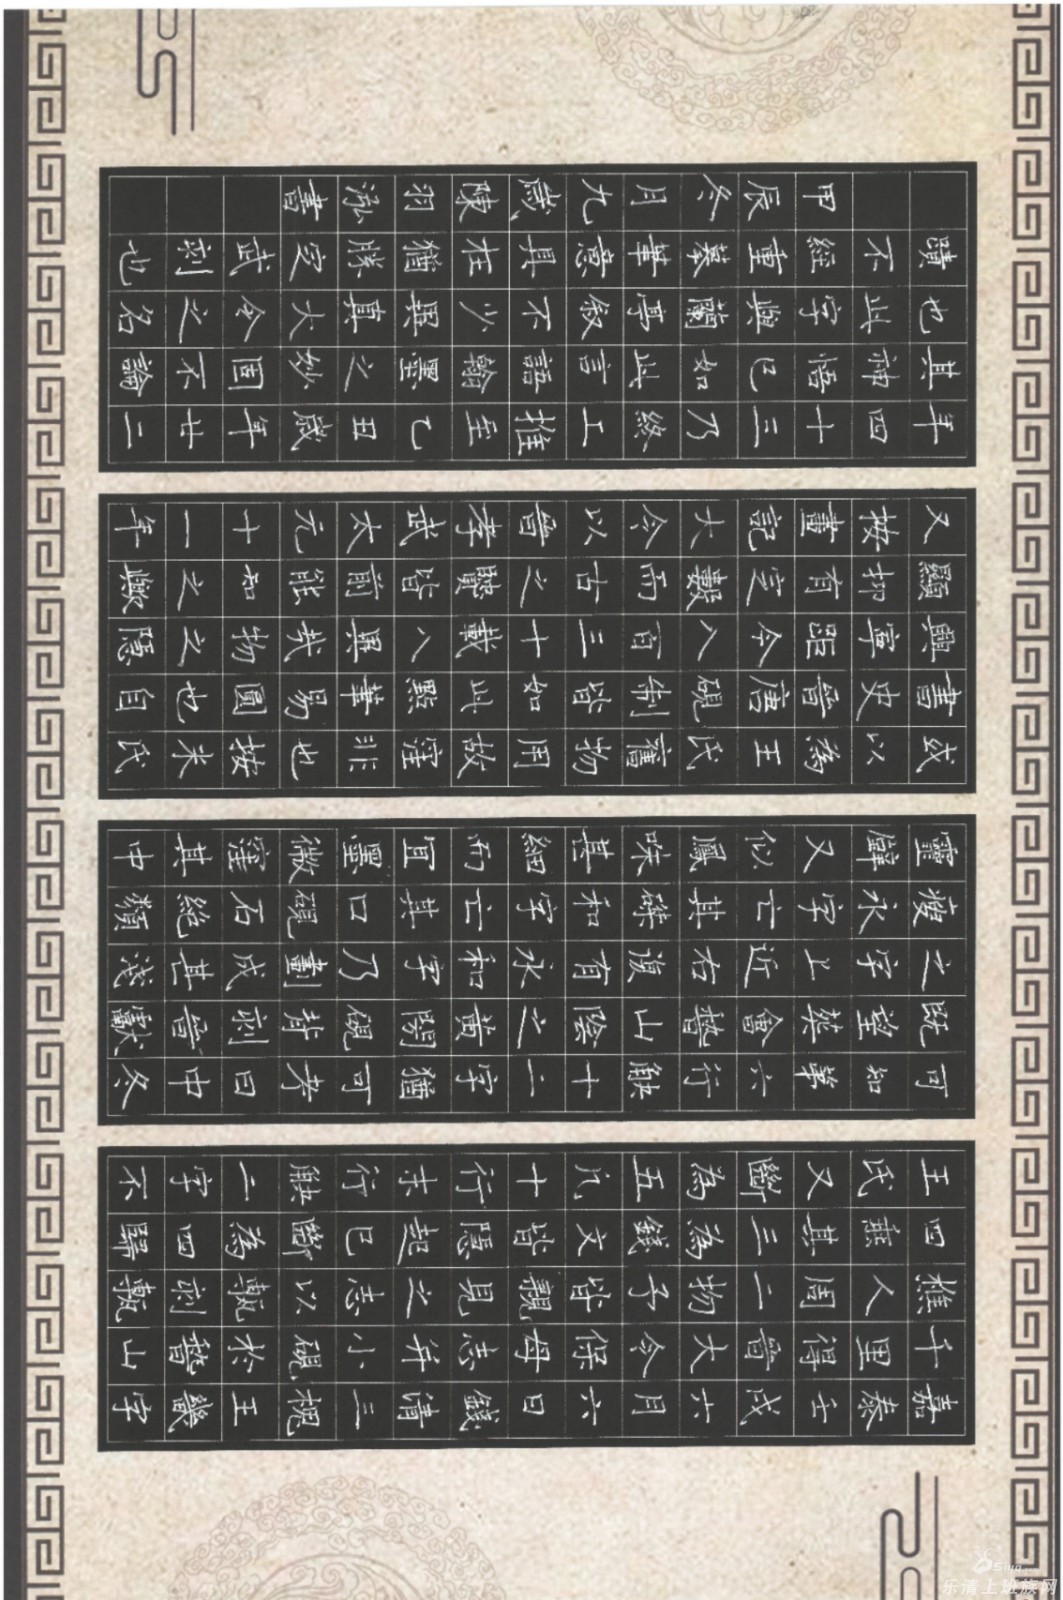 嘉泰壬戌六月六日錢清三槐王畿字
千里得晉大令保母志并小硯於稽山
樵人周二物予皆親見之志以甎刻甎
四垂其三為錢文皆隱起已斷為四歸
王氏又斷為五凡十行末行缺二字不
可知筆六行缺十二字猶可考曰中冬
既望葬會稽山陰之黃閍硯背刻晉獻
之字上近右復有永和字乃劃成甚淺
瘦永字亡其磔和字亡其口硯石絕類
靈壁又似鳳咮甚細而宜墨微窪其中
或以為王氏舊物用故窪非也按米氏
書史晉唐硯制皆如此點筆易圓也自
興寧距今八百三十載八異哉物之隱
顯抑有定數而古之賢皆前能知之歟
又按畫記大令以晉孝武太元十一年
年四十三乃終工推至乙丑歲年廿二
其神悟已如此言語翰墨之妙固不論
也此字與蘭亭敘不少異真大令之名
蹟不經重摹筆意具在猶勝定武刻也
甲辰冬月九歲陳羽泓書
乐清上班族网